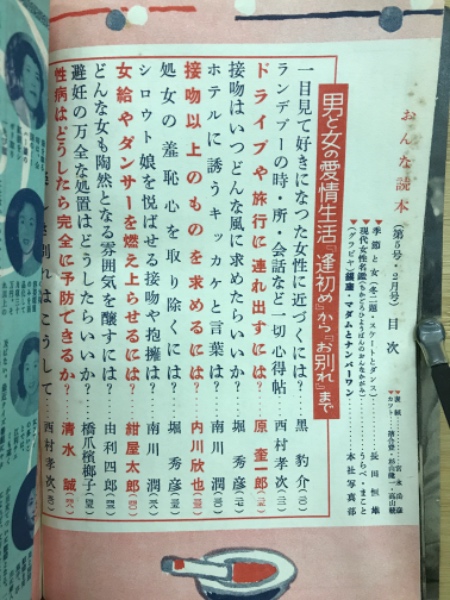 おんな読本（第5号・2月号）目次
季節と女（冬二題・スケートとダンス）……長田恒雄
現代女性名鑑……うらべ・まこと
（グラビヤ）銀座・マダムとナンバーワン……本社写真部
男と女の愛情生活『逢初め』から『お別れ』まで
一目見て好きになった女性に近づくには？……黒豹介
ランデブーの時・所・会話など一切心得帖……西村孝次
ドライブや旅行に連れ出すには？……原奎一郎
接吻はいつどんな風に求めたらいいか？……南川潤
ホテルに誘うキッカケと言葉は？……堀秀彦
接吻以上のものを求めるには？……内川欣也
処女の羞恥心を取り除くには？……堀秀彦
シロウト娘を悦ばせる接吻や抱擁は？……南川潤
女給やダンサーを燃え上らせるには？……紺屋太郎
どんな女も陶然となる雰囲気を醸すには？……由利四郎
避妊の万全な処置はどうしたらいいか？……橋爪檳榔子
性病はどうしたら完全に予防できるか？……清水誠
別れはこうして……西村孝次